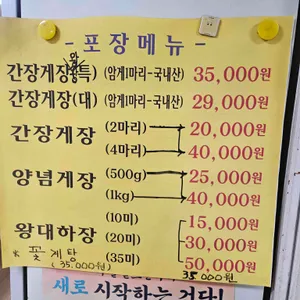 - 포장메뉴 -
간장게장(특) (암게1마리-국내산) 35,000원
간장게장(대) (암게1마리-국내산) 29,000원
간장게장 (2마리) 20,000원
(4마리) 40,000원
양념게장 (500g) 25,000원
(1kg) 40,000원
왕대하장 (10미) 15,000원
(20미) 30,000원
(35미) 50,000원
* 꽃게탕 35,000원
(35,000원)
새로 시작하는 거다!